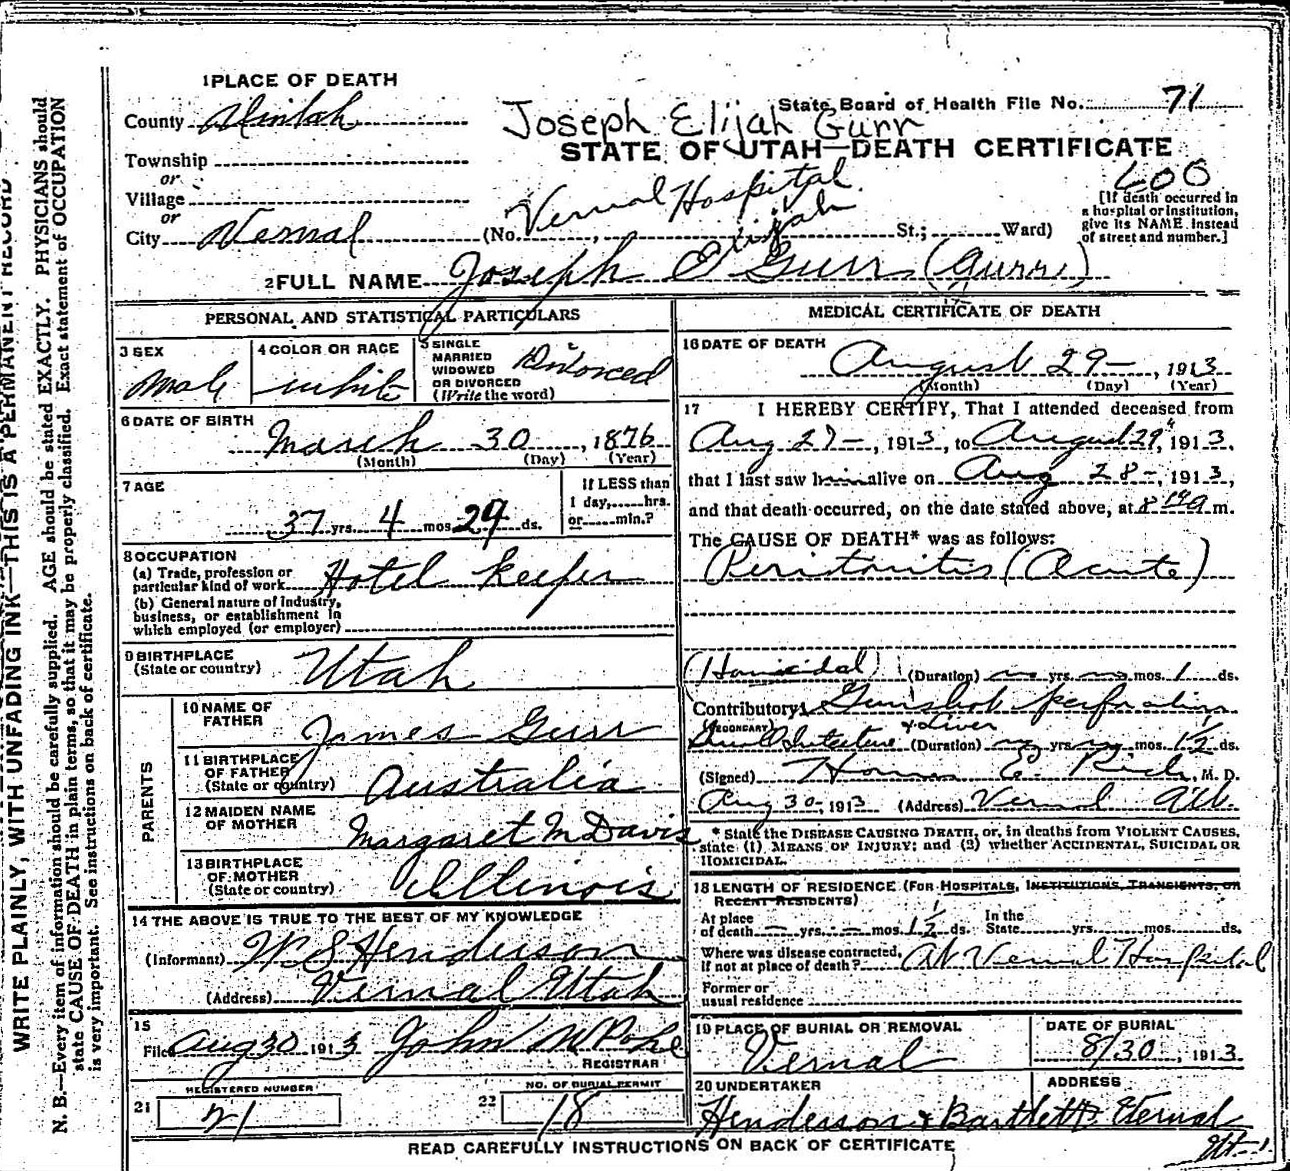 WRITE PLAINLY, WITH UNFADING INK—THIS IS A PERMANENT RECORD
N. B.—Every item of information should be carefully supplied. AGE should be stated EXACTLY. PHYSICIANS should
state CAUSE OF DEATH in plain terms, so that it may be properly classified. Exact statement of OCCUPATION
is very important. See instructions on back of certificate.
1 PLACE OF DEATH
State Board of Health File No. 71
County Uintah
Joseph Elijah Gurr
STATE OF UTAH—DEATH CERTIFICATE
Township
or
Village
or
600
[If death occurred in
a hospital or institution,
give its NAME instead
of street and number.]
City Vernal (No. Vernal Hospital St.; Ward)
Elijah
2 FULL NAME Joseph E Gurr (Gurr)
PERSONAL AND STATISTICAL PARTICULARS
3 SEX
Male
4 COLOR OR RACE
white
5 SINGLE
MARRIED
WIDOWED
OR DIVORCED
(Write the word)
Divorced
6 DATE OF BIRTH
March 30, 1876
(Month) (Day) (Year)
7 AGE
37 yrs. 4 mos. 29 ds.
If LESS than
1 day, hrs.
or min.?
8 OCCUPATION
(a) Trade, profession or
particular kind of work Hotel Keeper
(b) General nature of industry,
business, or establishment in
which employed (or employer)
9 BIRTHPLACE
(State or country) Utah
PARENTS
10 NAME OF
FATHER James Gurr
11 BIRTHPLACE
OF FATHER
(State or country) Australia
12 MAIDEN NAME
OF MOTHER Margaret M Davis
13 BIRTHPLACE
OF MOTHER
(State or country) Illinois
14 THE ABOVE IS TRUE TO THE BEST OF MY KNOWLEDGE
(Informant) W S Henderson
(Address) Vernal Utah
15
Filed Aug 30 1913 John M Pohl
REGISTRAR
REGISTERED NUMBER
21 21
NO. OF BURIAL PERMIT
22 18
MEDICAL CERTIFICATE OF DEATH
16 DATE OF DEATH
August 29—, 1913
(Month) (Day) (Year)
17 I HEREBY CERTIFY, That I attended deceased from
Aug 27—, 1913, to August 29", 1913,
that I last saw him alive on Aug 28—, 1913,
and that death occurred, on the date stated above, at m.
The CAUSE OF DEATH* was as follows:
Peritonitis (Acute)
(Homicidal) (Duration) yrs. mos. 1 ds.
Contributory Gunshot perforation
(SECONDARY) & Liver
Small Intestine (Duration) yrs. mos. 1½ ds.
(Signed) Homer E. Rich, M. D.
Aug 30—, 1913 (Address) Vernal Ut.
* State the DISEASE CAUSING DEATH, or, in deaths from VIOLENT CAUSES,
state (1) MEANS OF INJURY; and (2) whether ACCIDENTAL, SUICIDAL OR
HOMICIDAL.
18 LENGTH OF RESIDENCE (FOR HOSPITALS, INSTITUTIONS, TRANSIENTS, OR
RECENT RESIDENTS)
At place
of death — yrs. — mos. 1½ ds.
In the
State yrs. mos. ds.
Where was disease contracted,
if not at place of death? At Vernal Hospital
Former or
usual residence
19 PLACE OF BURIAL OR REMOVAL
Vernal
DATE OF BURIAL
8/30, 1913.
20 UNDERTAKER
Henderson & Bartlett
ADDRESS
Vernal
Ut—
READ CAREFULLY INSTRUCTIONS ON BACK OF CERTIFICATE